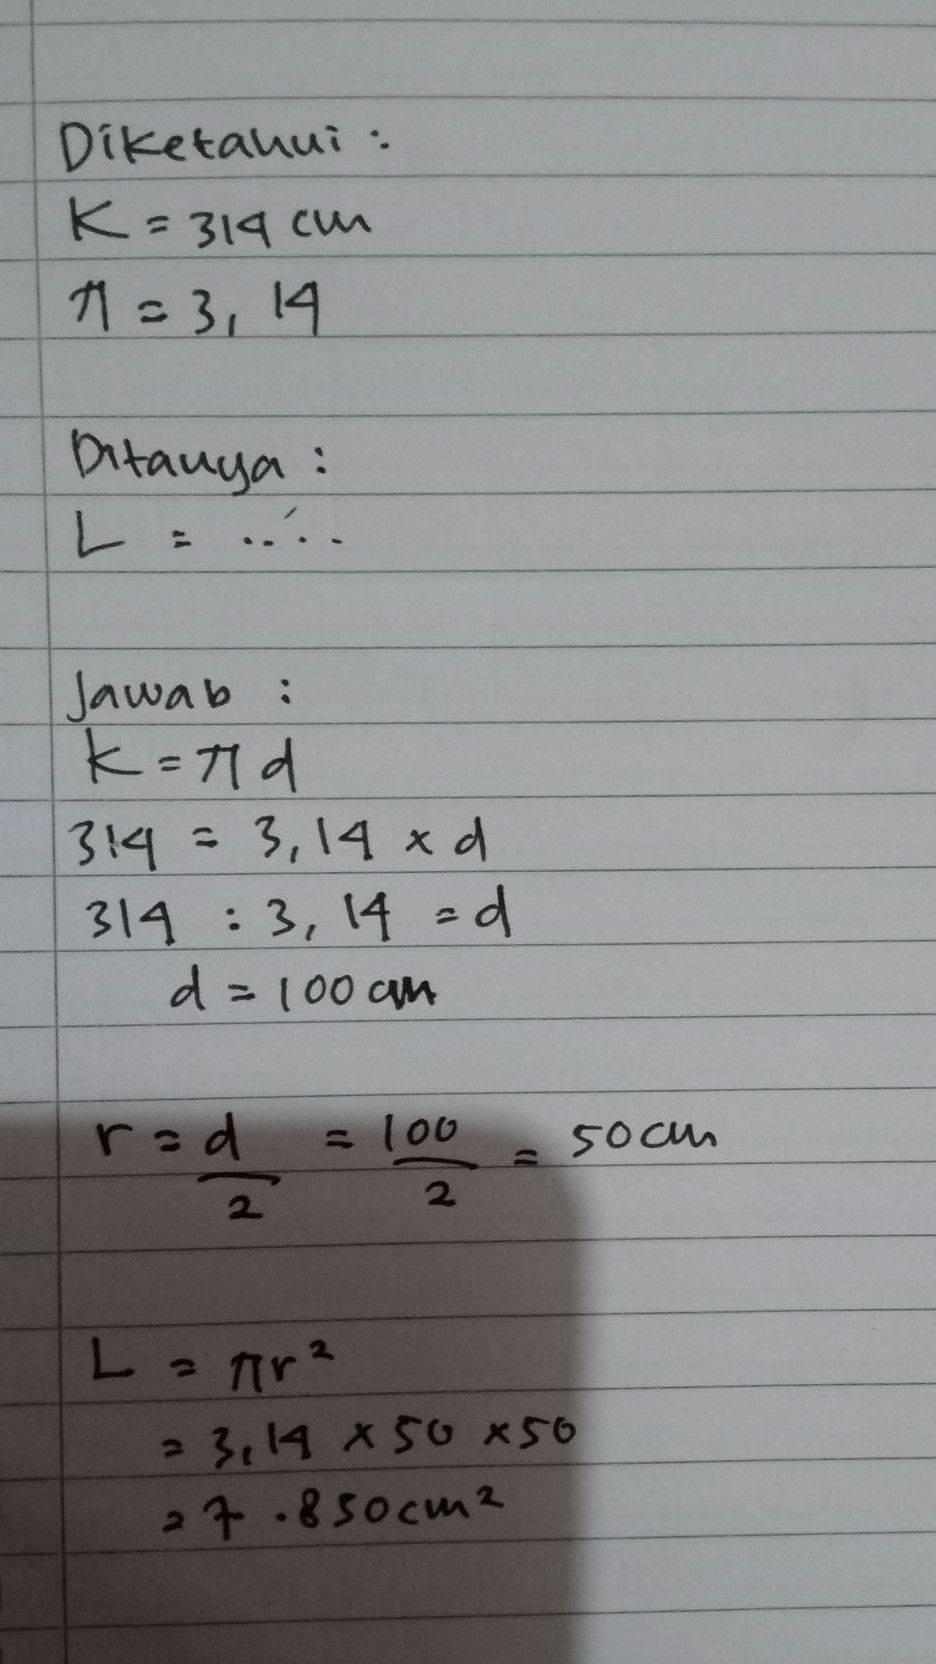 Diketahui :
K = 314 cm
π = 3,14
Ditanya :
L = .....
Jawab :
K = π d
314 = 3,14 x d
314 : 3,14 = d
d = 100 cm
r = d/2 = 100/2 = 50 cm
L = πr²
= 3,14 x 50 x 50
= 7.850 cm²